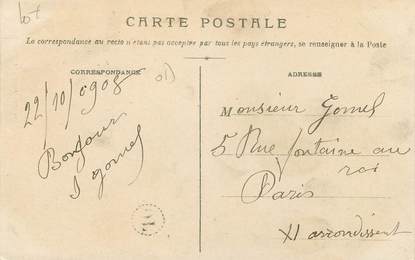 Lot
CARTE POSTALE
La correspondance au recto n'étant pas acceptée par tous les pays étrangers, se renseigner à la Poste
CORRESPONDANCE
22/10/0908
Bonjour
J gomel
ADRESSE
Monsieur Gomel
5 Rue fontaine au
roi
Paris
XI arrondissent